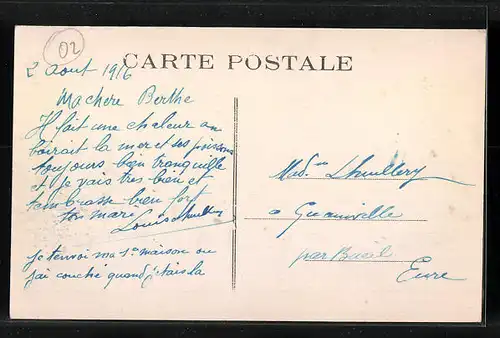 02
CARTE POSTALE
2 aout 1916
Machere Berthe
Il fait une chaleur on
boirait la mer et ses poissons
toujours bien tranquille
et je vais tres bien et
tembrasse bien fort
ton mari Louis Lhuillery
je tenvoi ma 1e maison ou
jai couché quand jetais la
Mad.m Lhuillery
a Guainville
par Bueil
Eure